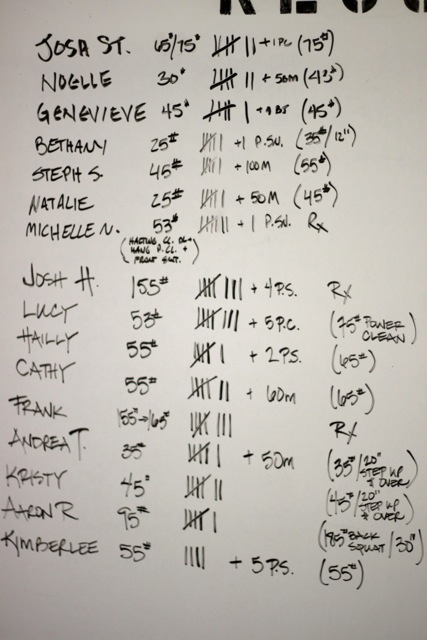 JOSH ST. 65#/75# 𝍸 II + 1 PC (75#)
NOELLE 30# 𝍸 II + 50M (43#)
GENEVIEVE 45# 𝍸 I + 9 BJ (45#)
BETHANY 25# 𝍸 I + 1 P.SN. (35#/12")
STEPH S. 45# 𝍸 I + 100M (55#)
NATALIE 25# 𝍸 I + 50M (45#)
MICHELLE N. 53# 𝍸 II + 1 P.SN. Rx
HANG P.CL. +
FRONT SQT.)
JOSH H. 155# 𝍸 III + 4 P.S. Rx
LUCY 53# 𝍸 III + 5 P.C. (75# POWER CLEAN)
HAILLY 55# 𝍸 I + 2 P.S. (65#)
CATHY 55# 𝍸 II + 60M (65#)
FRANK 155#→165# 𝍸 III Rx
ANDREA T. 35# 𝍸 I + 50M (35#/20" STEP UP & OVER)
KRISTY 45# 𝍸 II (45#/20" STEP UP & OVER)
AARON R 95# 𝍸 I (185# BACK SQUAT/30")
KIMBERLEE 55# IIII + 5 P.S. (55#)